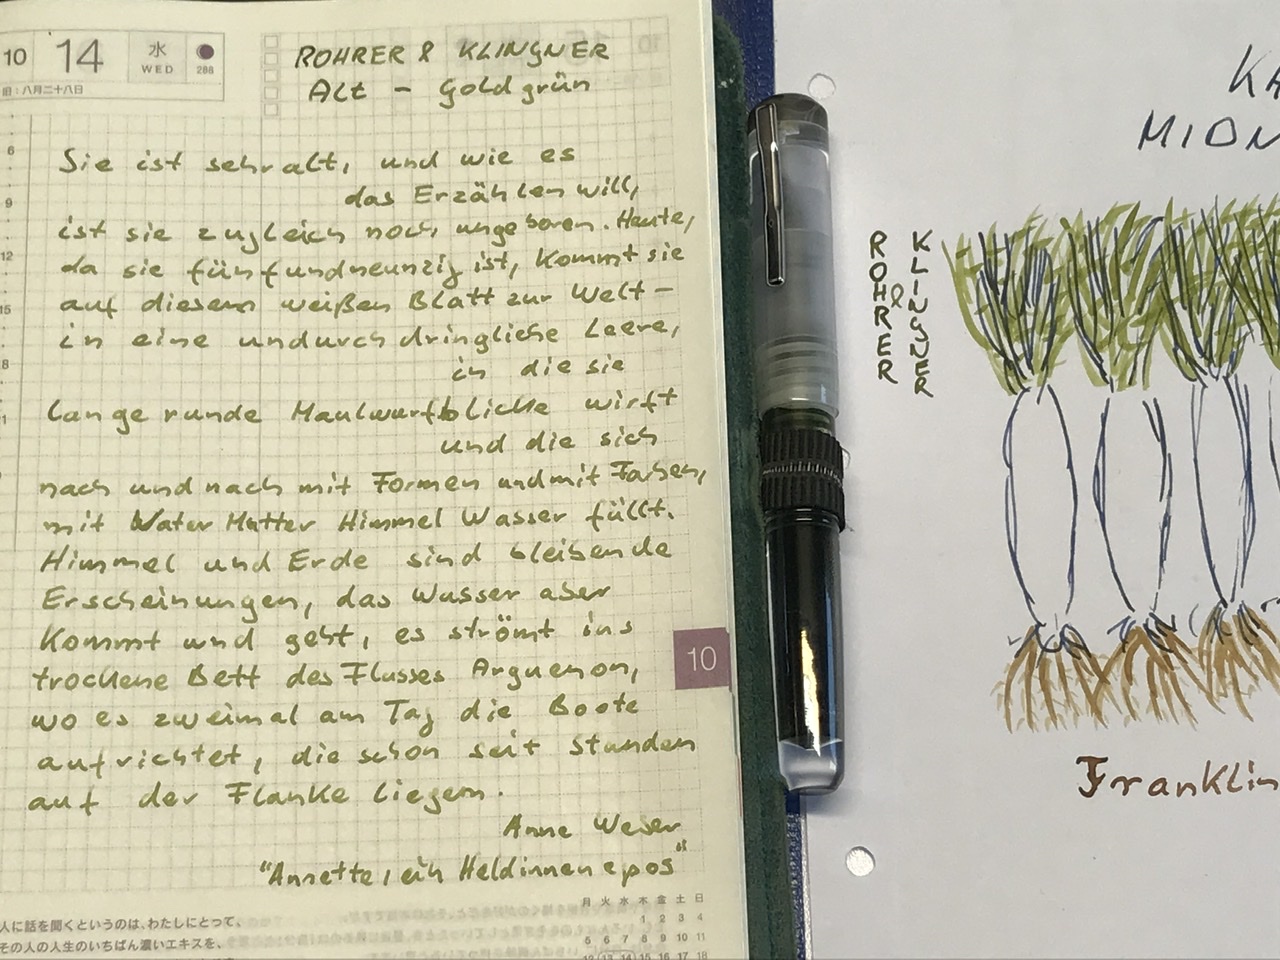 10 14 水 WED 288
旧:八月二十八日
ROHRER & KLINGNER
Alt - Goldgrün
6
9
12
15
8
1
Sie ist sehr alt, und wie es
das Erzählen will,
ist sie zugleich noch ungeboren. Heute,
da sie fünfundneunzig ist, kommt sie
auf diesem weißen Blatt zur Welt -
in eine undurchdringliche Leere,
in die sie
lange runde Maulwurfblicke wirft
und die sich
nach und nach mit Formen und mit Farben,
mit Vater Mutter Himmel Wasser füllt.
Himmel und Erde sind bleibende
Erscheinungen, das Wasser aber
kommt und geht, es strömt ins
trockene Bett des Flusses Arguenon,
wo es zweimal am Tag die Boote
aufrichtet, die schon seit Stunden
auf der Flanke liegen.
Anne Weber
"Annette, ein Heldinnenepos"
10
人に話を聞くというのは、わたしにとって、
その人の人生のいちばん濃いエキスを、
月 火 水 木 金 土 日
1 2 3 4
5 6 7 8 9 10 11
12 13 14 15 16 17 18
KA
MIDN
ROHRER
&
KLINGNER
Franklin